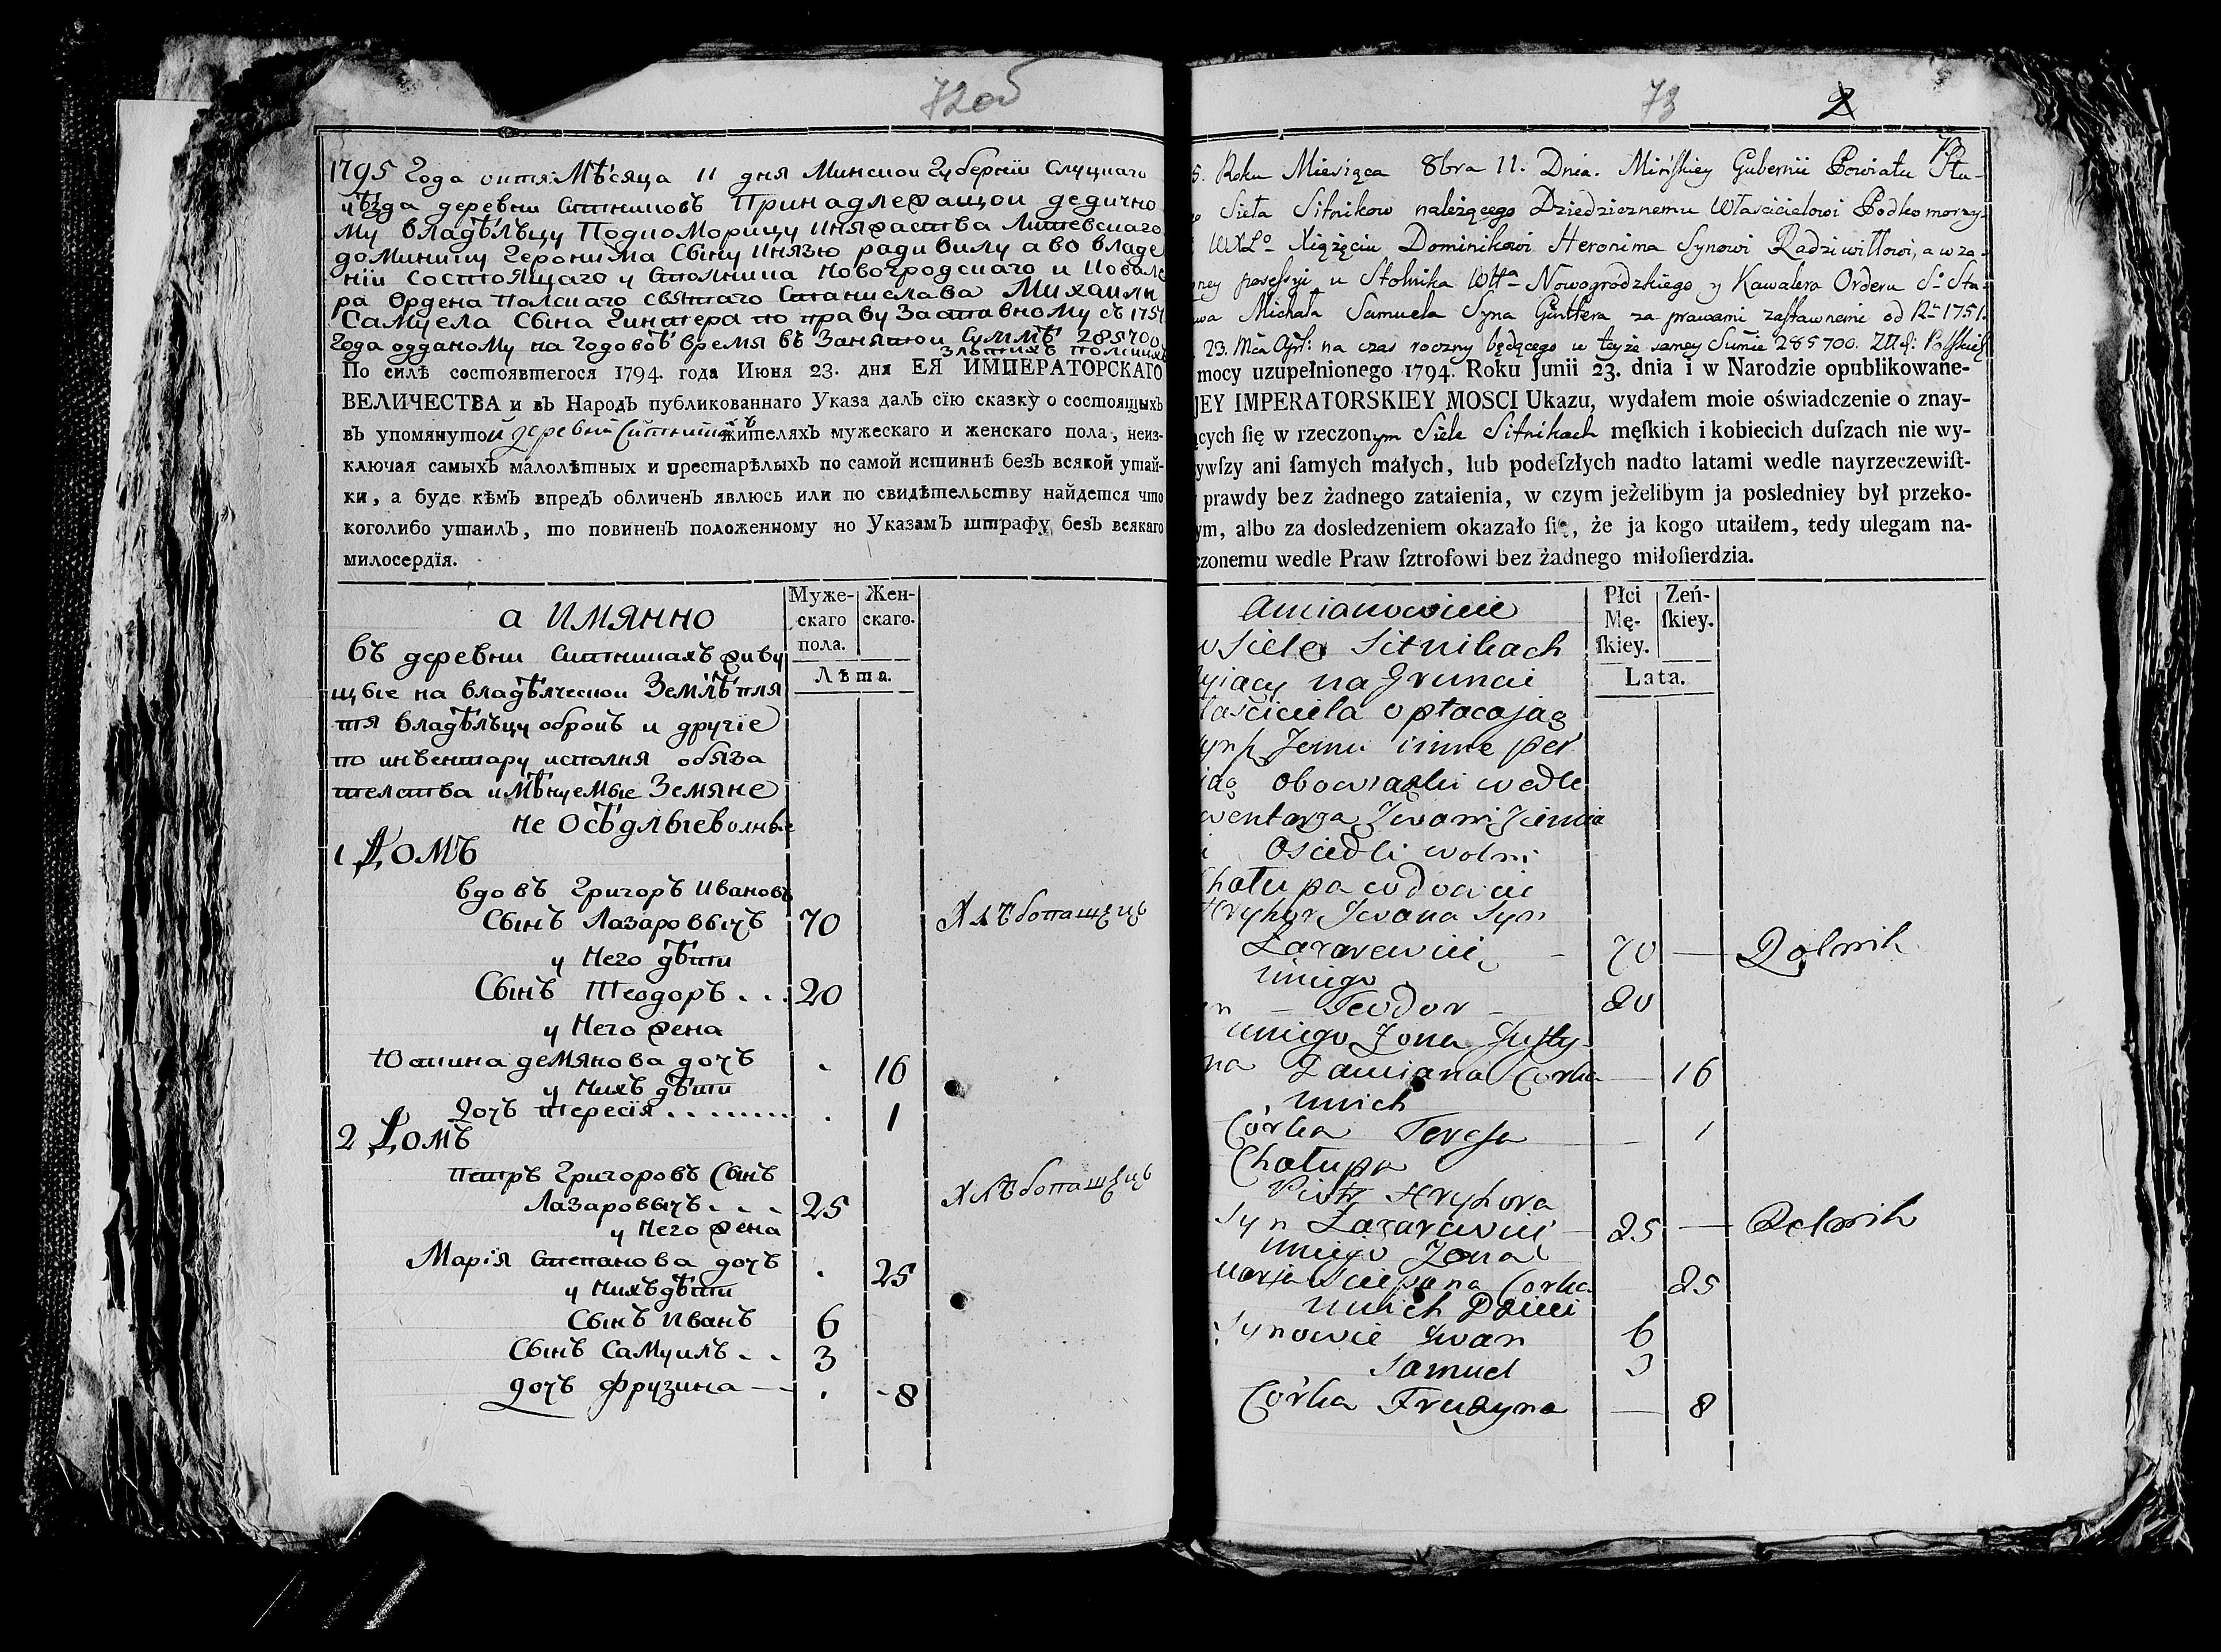 72об
1795 Года октя: Мѣсяца 11 дня Минскои Губернїи Слуцкаго
уѣзда деревни Ситниковъ Принадлежащои дедично
му владѣльцу Подкоморицу Княжества Литевскаго
доминику Геронима Сыну Князю радивилу а во владе
нїи Состоящаго у Столника Новогродскаго и Кавале
ра Ордена Полскаго святаго Станислава Михаила
Самуела Сына Гинтера по праву Заставному съ 1751
Года отданому на годовое время въ Занятои Суммѣ 285700
Злотихъ Полских
По силѣ состоявшегося 1794. года Июня 23. дня ЕЯ ИМПЕРАТОРСКАГО
ВЕЛИЧЕСТВА и въ Народъ публикованнаго Указа далъ сїю сказку о состоящыхъ
въ упомянутой деревни Ситникахъ жителяхъ мужескаго и женскаго пола, неиз-
ключая самыхъ малолѣтных и престарѣлыхъ по самой истиннѣ безъ всякой утай-
ки, а буде кѣмъ впредь обличенъ явлюсь или по свидѣтельству найдется что
коголибо утаилъ, то повиненъ положенному но Указамъ штрафу безъ всякаго
милосердїя.
Муже-скаго пола. Жен-скаго.
Лѣта.
а Имянно
въ деревни Ситникахъ живу
щые на владѣлческои Землѣ пля
тя владѣлъцу оброкъ и другїе
по инвентару исполня обяза
телства имѣнуемые Земяне
не Осѣдлые волные
1 Домъ
вдовъ Григоръ Ивановъ
Сынъ Лазаровычъ 70 Хлѣбопашецъ
у Него дѣти
Сынъ Теодоръ . . 20
у Него жена
Юстина демянова дочъ . 16
у Нихъ дѣти
Дочъ тересїя . . . . . . . . . 1
2 Домъ
Петръ Григоровъ Сынъ
Лазаровычъ . . . 25 Хлѣбопашецъ
у Него жена
Марїя Степанова дочъ . 25
у Нихъ дѣти
Сынъ Иванъ 6
Сынъ Самуилъ . . 3
дочъ фрузина — . - 8
73 2
5. Roku Miesiąca 8bra 11. Dnia. Mińskiey Gubernii Powiatu Słu-
Sieła Sitnikow należącego Dziedzicznemu Właścicielowi Podkomorzy-
WXLo Xiążęciu Dominikowi Heronima Synowi Radziwiłłowi, a w za-
ney posessyi u Stolnika Wtta Nowogródzkiego y Kawalera Orderu So Sta-
wa Michała Samuela Syna Günttera za prawami zastawnemi od Ru 1751.
23. Mca Apr: na czas roczny będącego w teyże samey Sumie 285700. Złł: Polskich
mocy uzupełnionego 1794. Roku Junii 23. dnia i w Narodzie opublikowane-
JEY IMPERATORSKIEY MOSCI Ukazu, wydałem moie oświadczenie o znay-
ących ſię w rzeczonym Siele Sitnikach męſkich i kobiecich duſzach nie wy-
ywſzy ani ſamych małych, lub podeſzłych nadto latami wedle nayrzeczewiſt-
prawdy bez żadnego zataienia, w czym jeżelibym ja posledniey był przeko-
ym, albo za dosledzeniem okazało ſię, że ja kogo utaiłem, tedy ulegam na-
czonemu wedle Praw ſztrofowi bez żadnego miłoſierdzia.
Płci Mę-ſkiey. Zeń-ſkiey.
Lata.
Amianowicie
w siele Sitnikach
yjacy na Gruncie
łaściciela opłacają
ynſz Jemu i inne peł
iąg obowiązki wedle
wentarza Zwani Ziemia
i Osiedli wolni
hałupa wdowiec
Hryhor Jwana Syn
Łazarewicz — 70 — Rolnik
uniego
n — Teodor — 20
uniego Zona Justy-
na Damiana Corka — 16
unich
Córka Teresa — 1
Chałupa
Piotr Hryhora
Syn Łazarewicz — 25 — Rolnik
uniego Zona
Marja Sciepana Corka 25
unich Dzieci
Synowie Jwan 6
Samuel 3
Córka Fruzyna — 8